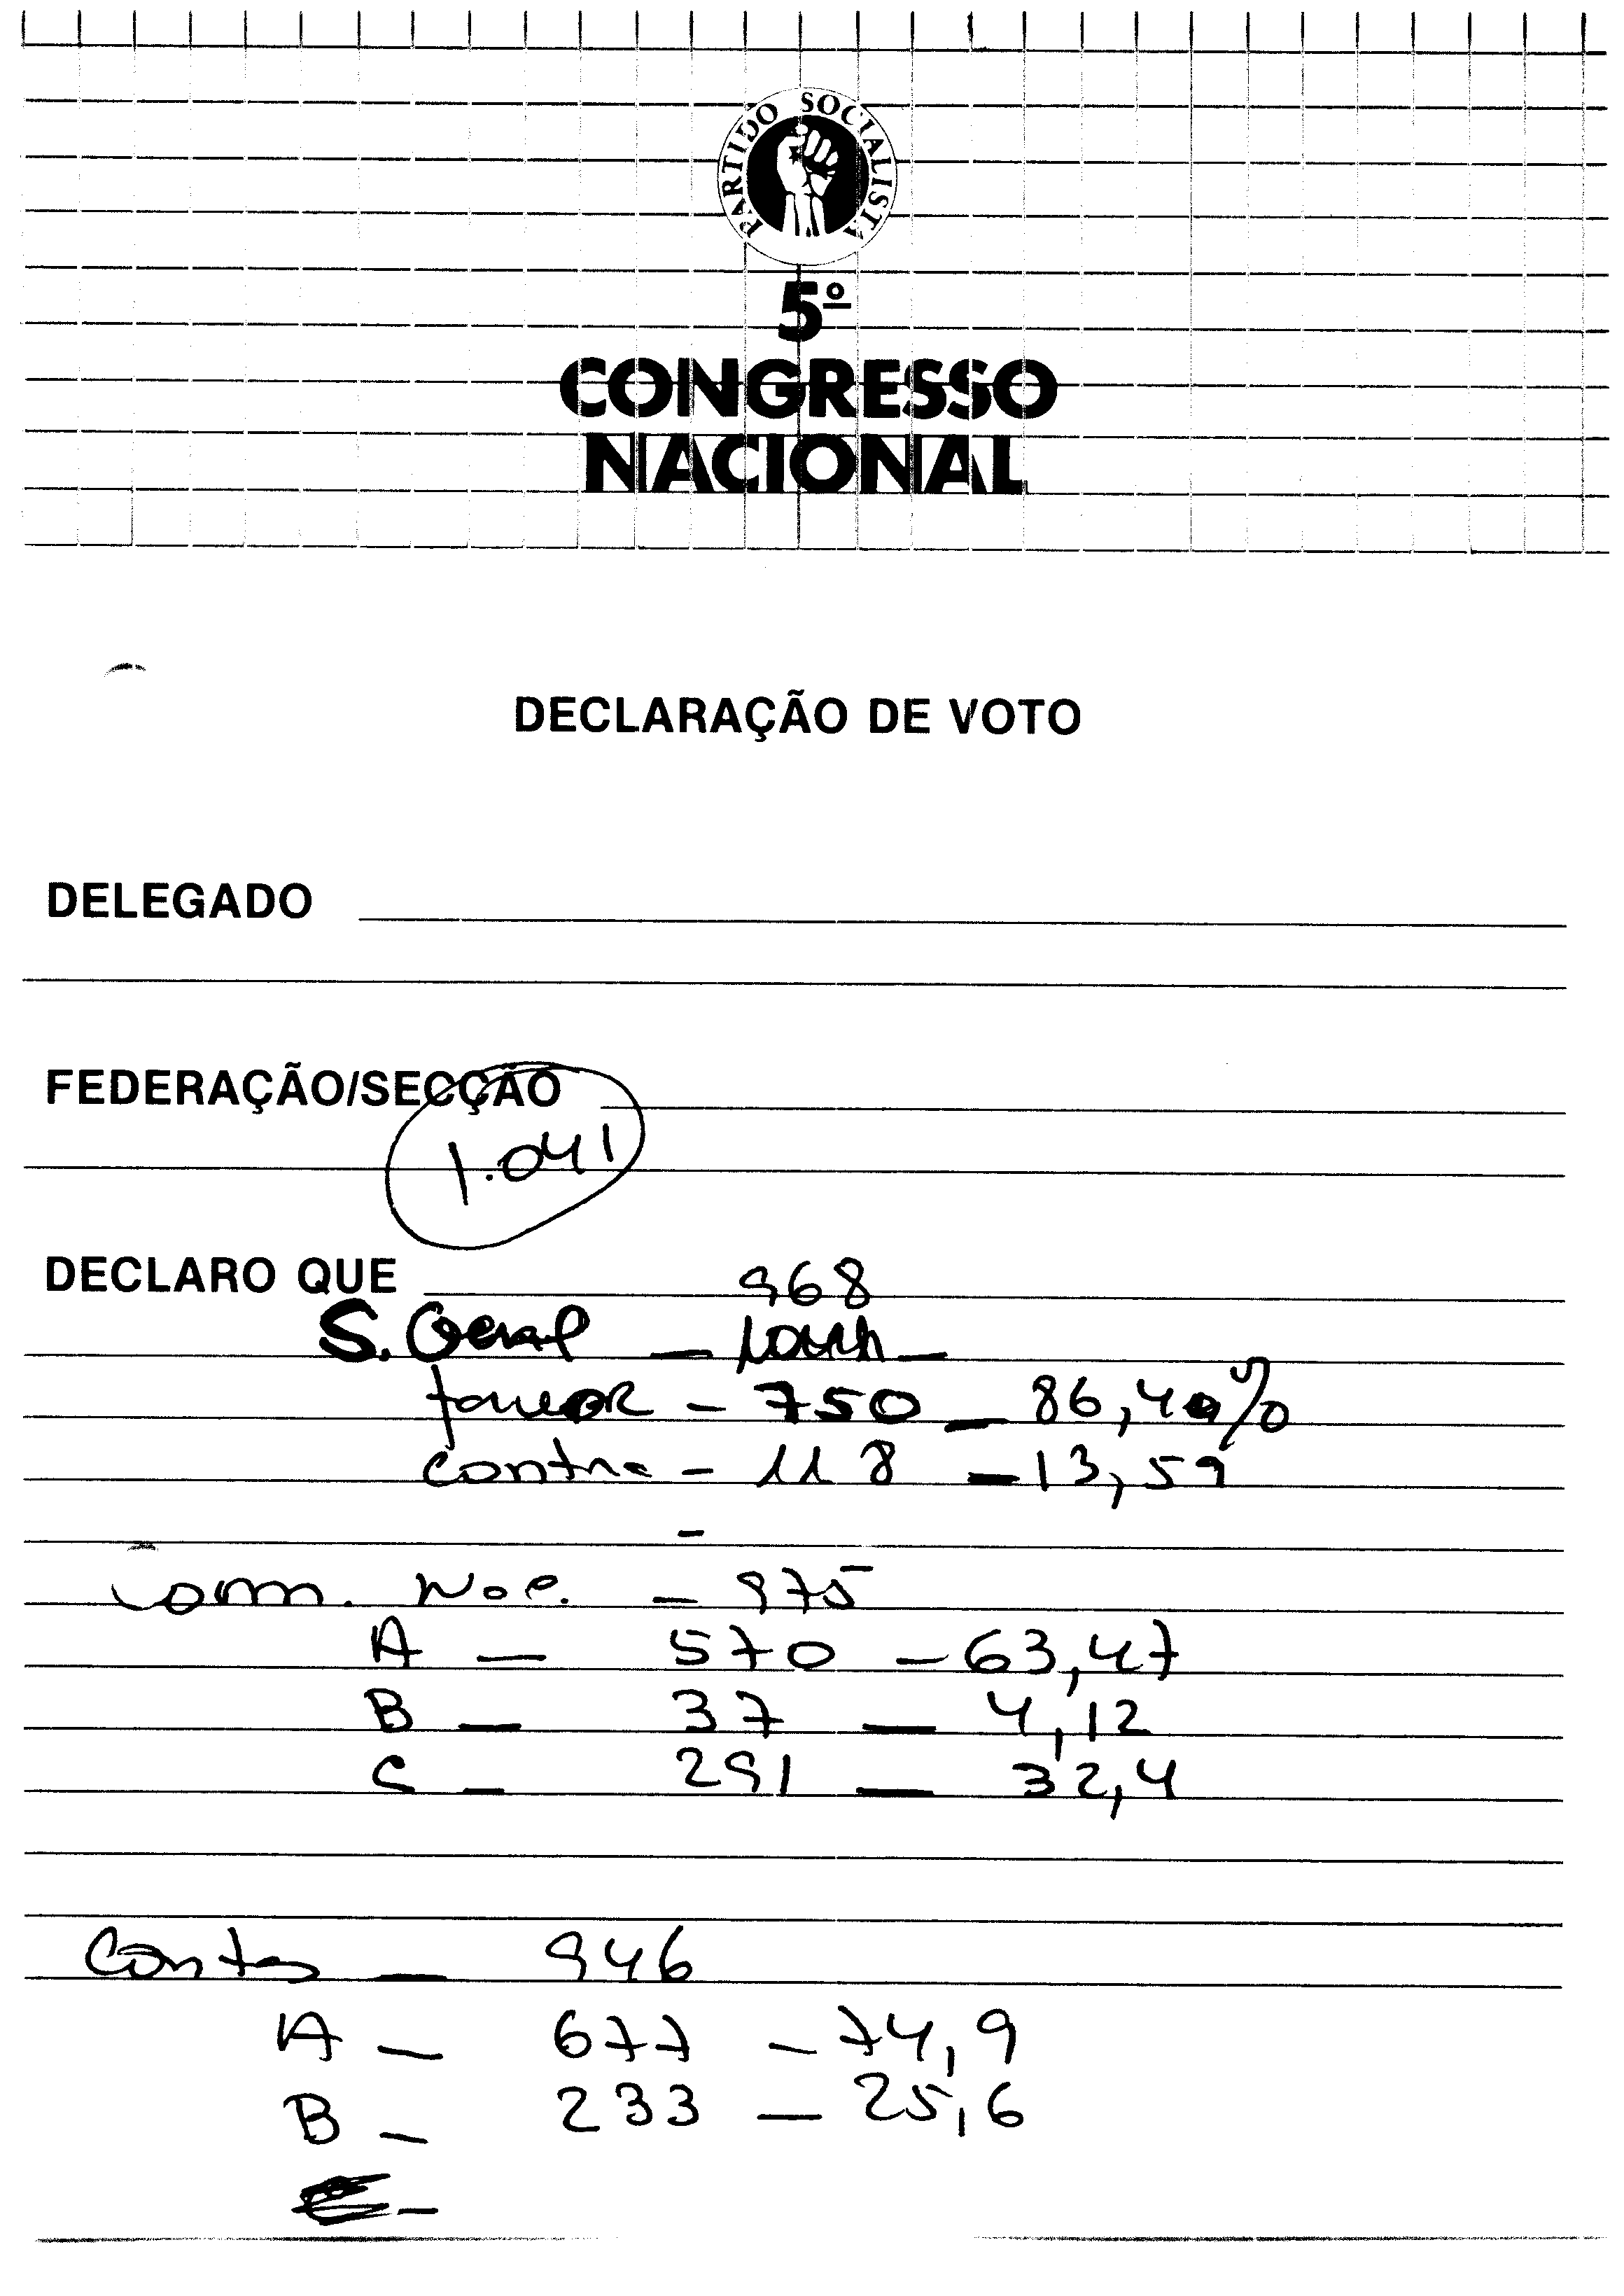 PARTIDO SOCIALISTA
5º
CONGRESSO
NACIONAL
DECLARAÇÃO DE VOTO
DELEGADO
FEDERAÇÃO/SECÇÃO
1.041
DECLARO QUE
968
S. Geral –
favor – 750 – 86,40%
contra – 118 – 13,59
–
Com. Nac. – 975
A – 570 – 63,47
B – 37 – 4,12
C – 291 – 32,4
Contas – 946
A – 677 – 74,9
B – 233 – 25,6